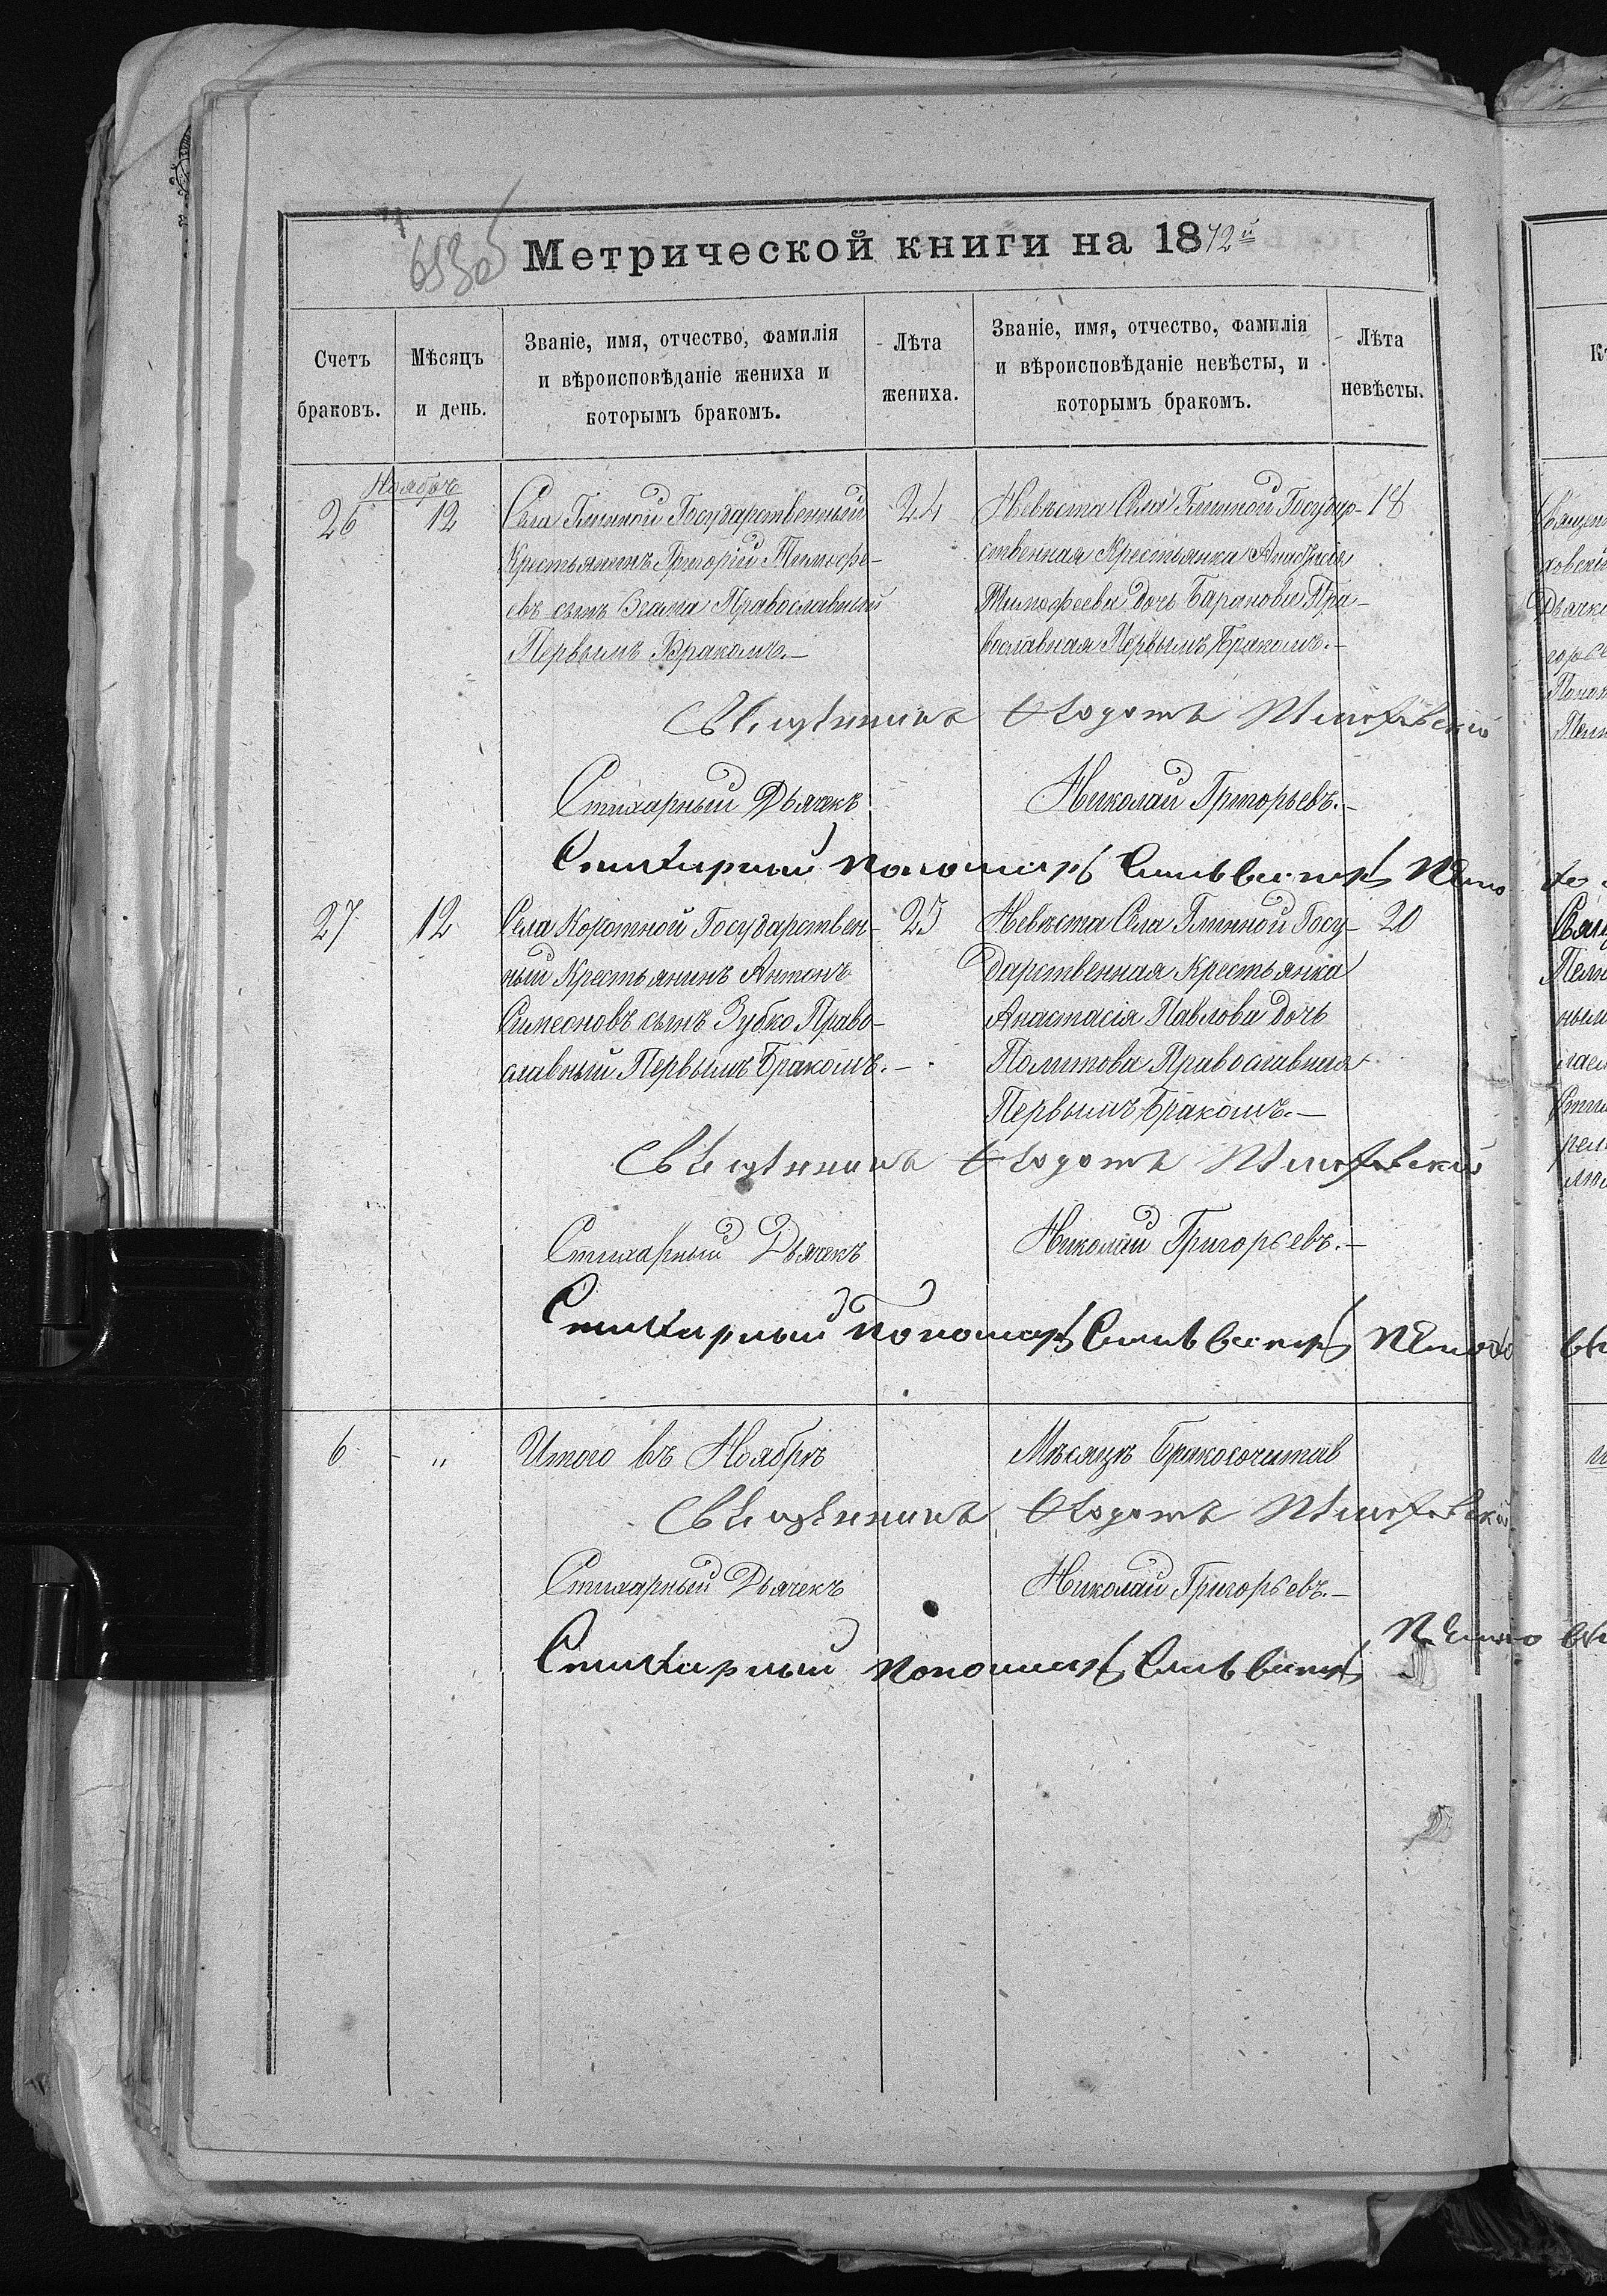 653об
Метрической книги на 1872й
Счетъ браковъ.
Мѣсяцъ и день.
Званіе, имя, отчество, фамилія
и вѣроисповѣданіе жениха и
которымъ бракомъ.
Лѣта жениха.
Званіе, имя, отчество, фамилія
и вѣроисповѣданіе невѣсты, и
которымъ бракомъ.
Лѣта невѣсты.
Ноябрь
26 12
Села Глинной Государственный
Крестьянинъ Григорій Тимофе-
евъ сынъ Православный
Первымъ Бракомъ.—
24
Невѣста Села Глинной Государ-
ственная Крестьянка
Тимофеева дочь Баранова Пра-
вославная Первымъ Бракомъ.—
18
Священникъ Ѳеодотъ
Стихарный Дьячекъ Николай Григорьевъ.—
Стихарный пономарь Сильвестръ
27 12
Села Коротной Государствен-
ный Крестьянинъ Антонъ
Симеоновъ сынъ Зубко Право-
славный Первымъ Бракомъ.—
25
Невѣста Села Глинной Госу-
дарственная Крестьянка
Анастасія Павлова дочь
Политова Православная
Первымъ Бракомъ.—
20
Священникъ Ѳеодотъ
Стихарный Дьячекъ Николай Григорьевъ.—
Стихарный пономарь Сильвестръ
6 „ Итого въ Ноябрѣ Мѣсяцѣ Бракосочитав
Священникъ Ѳеодотъ
Стихарный Дьячекъ Николай Григорьевъ.—
Стихарный пономарь Сильвестръ